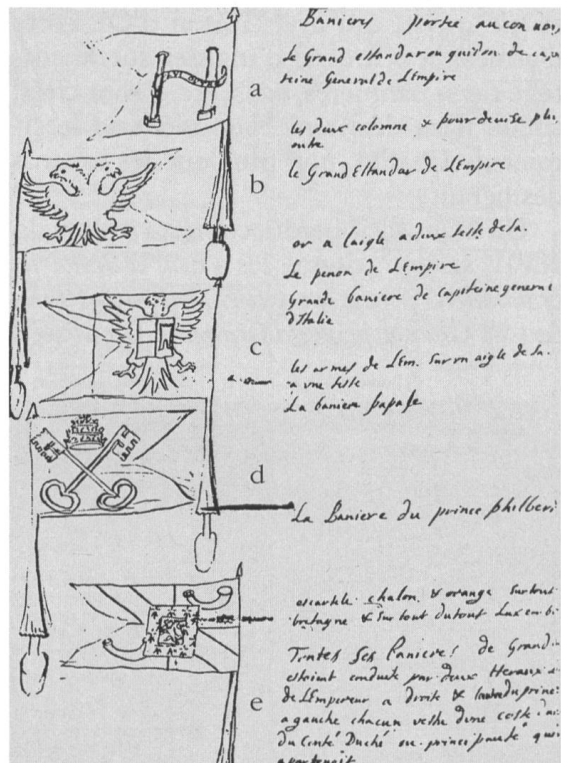 Banieres portée au con uoy
Le Grand estandar ou guidon de capi
teine General de L'Empire
a
les deux colomne & pour deuise plus
outre
b
le Grand Estandar de L'Empire
or a laigle a deux teste de sa.
Le penon de L'Empire
Grande baniere de capiteine general
d'Italie
c
les armes de L'Em. sur vn aigle de sa.
a vne teste
La baniere papale
d
La Baniere du prince philbert
escartele chalon & orange surtout
bretagne & sur tout dutout Luxemb
Toutes ses Banieres de Grand
estoint conduite par deux Heraux
de L'Empereur a droite & du prince
a gauche chacun vestu d'une cotte
e
du Conté Duché ou principauté qui
apartenoit